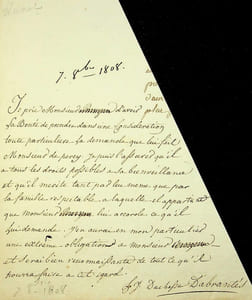 7. 8bre 1808.
Je prie Monsieur d'avoir
la Bonté de prendre dans une Considération
toute particulière la demande que lui fait
Monsieur de je puis l'assurer qu'il
a tous les droits possibles à sa bienveillance
et qu'il mérite tant par lui même que par
la famille respectable à laquelle il appartient
que Monsieur lui accorde ce qu'il
lui demande. J'en aurai en mon particulier
une extrême obligation à Monsieur
et serai bien reconnaissante de tout ce qu'il
pourra faire à cet égard.
Duchesse Dabrantès